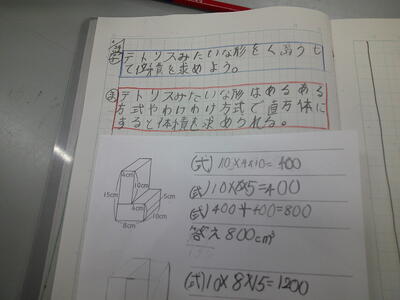 テトリスみたいな形をくふうし
て体積を求めよう。
ま
テトリスみたいな形はあるある
方式やわけわけ方式で直方体に
すると体積を求められる。
(式)10×4×10=400
(式)10×8×5=400
(式)400+400=800
答え 800cm³
(式)10×8×15=1200
4cm
10cm
15cm
5cm
4cm
10cm
8cm